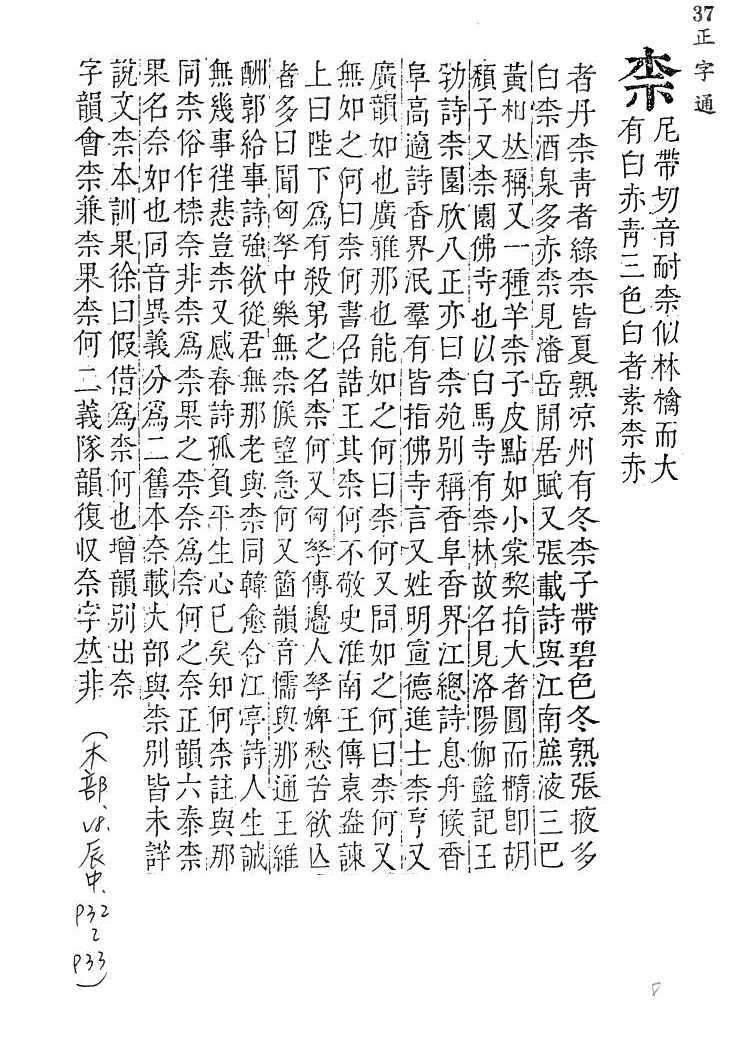 37
正字通
柰
尼帶切音耐柰似林檎而大
有白赤靑三色白者素柰赤
者丹柰靑者綠柰皆夏熟凉州有冬柰子帶碧色冬熟張掖多
白柰酒泉多赤柰見潘岳閒居賦又張載詩與江南蔗液三巴
黃柑𠀤稱又一種羊柰子皮點如小棠棃指大者圓而橢卽胡
頹子又柰園佛寺也以白馬寺有柰林故名見洛陽伽藍記王
勃詩柰園欣八正亦曰柰苑别稱香阜香界江總詩息舟候香
阜高適詩香界泯羣有皆指佛寺言又姓明宣德進士柰亨又
廣韻如也廣雅那也能如之何曰柰何又問如之何曰柰何又
無如之何曰柰何書召誥王其柰何不敬史淮南王傳袁盎諫
上曰陛下爲有殺弟之名柰何又匈孥傳邊人孥婢愁苦欲亾
者多曰聞匈孥中樂無柰候望急何又箇韻音懦與那通王維
酬郭給事詩強欲從君無那老與柰同韓愈合江亭詩人生誠
無幾事徃悲豈柰又感春詩孤負平生心已矣知何柰註與那
同柰俗作㮈奈非柰爲柰果之柰奈爲奈何之奈正韻六泰柰
果名奈如也同音異義分爲二舊本奈載大部與柰别皆未詳
說文柰本訓果徐曰假借爲柰何也增韻别出奈
字韻會柰兼柰果柰何二義隊韻復収奈字𠀤非
(木部、v8.辰中、p32~p33)